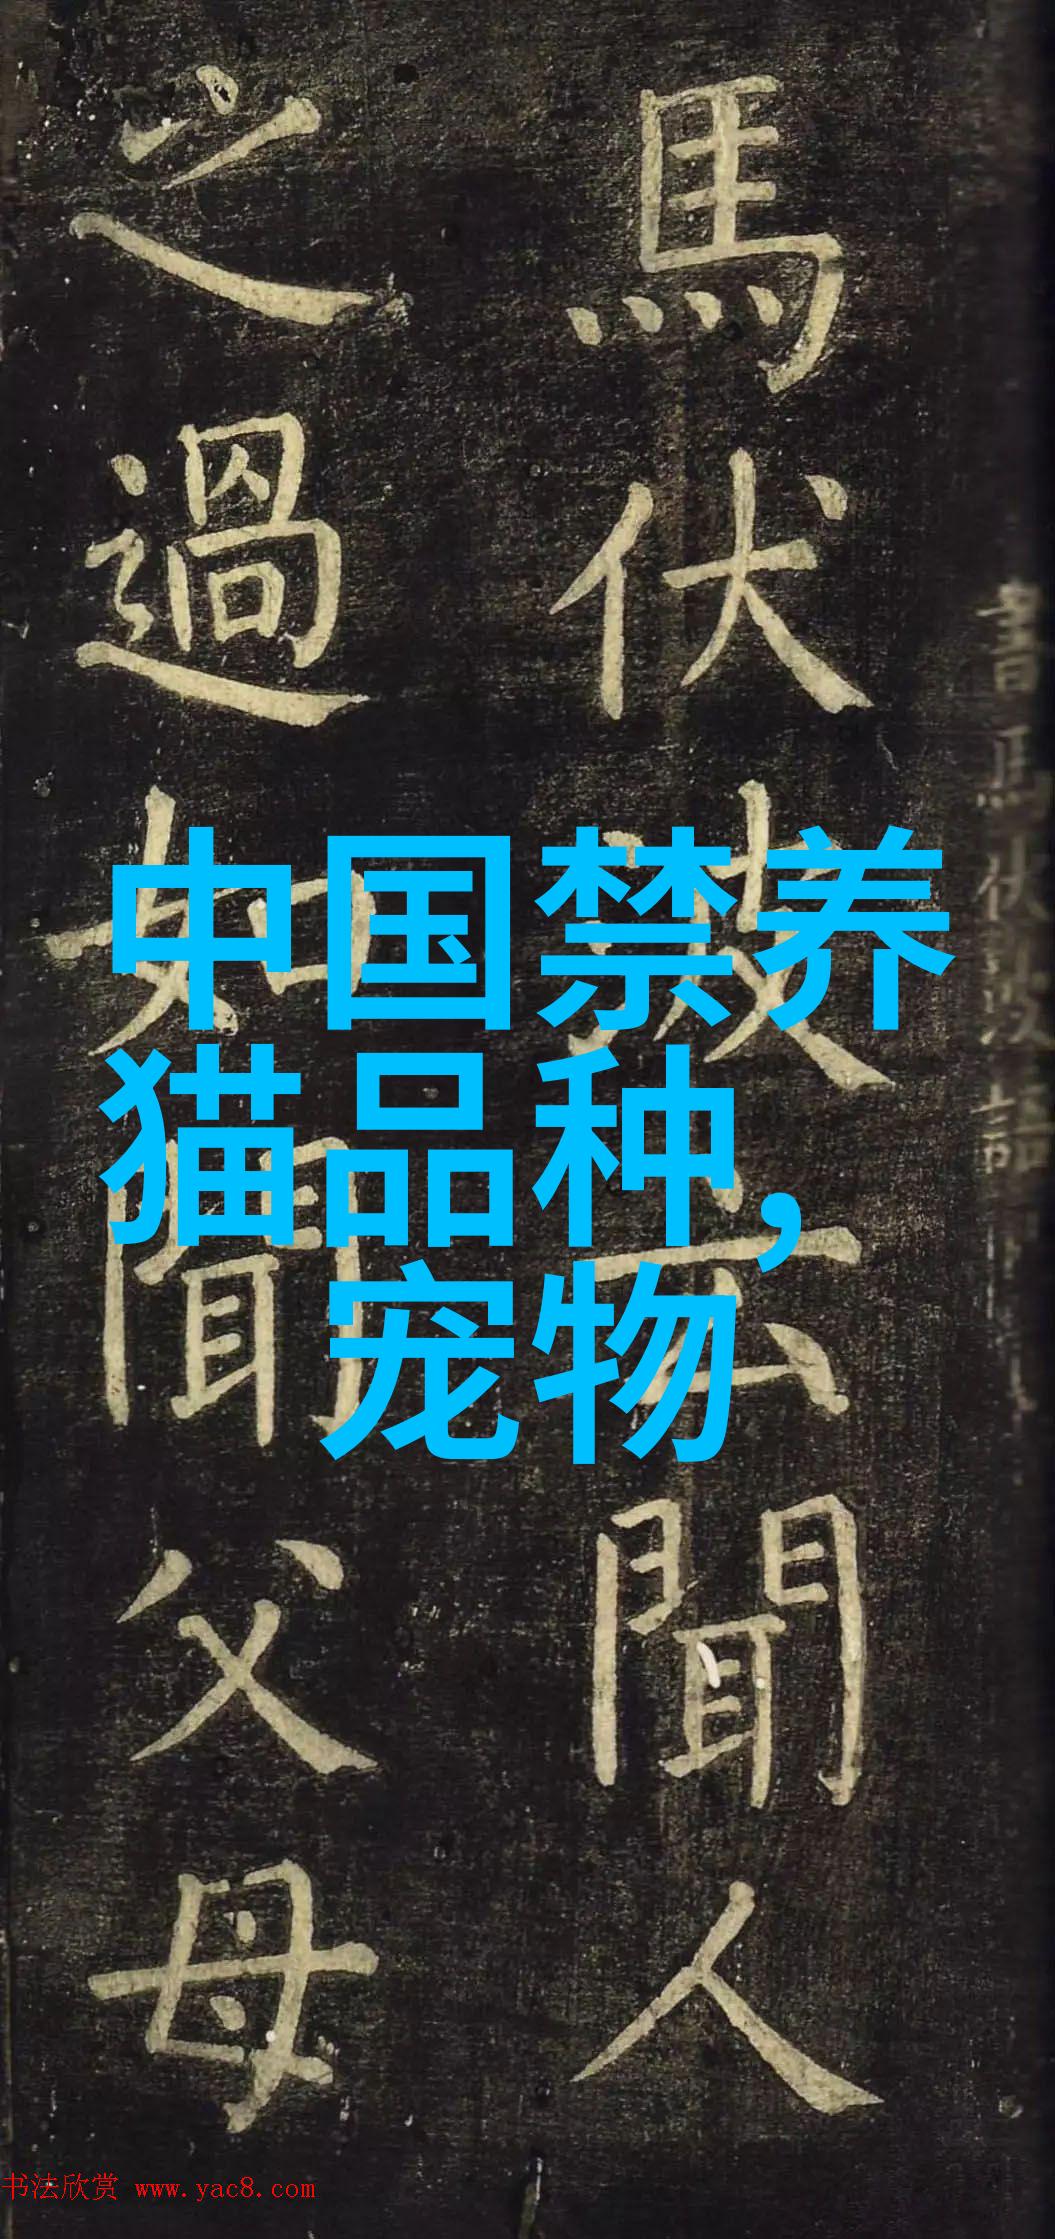 馬伏波云聞人
之過如聞父母
中国禁养
猫品种,
宠物
书法欣赏 www.yac8.com